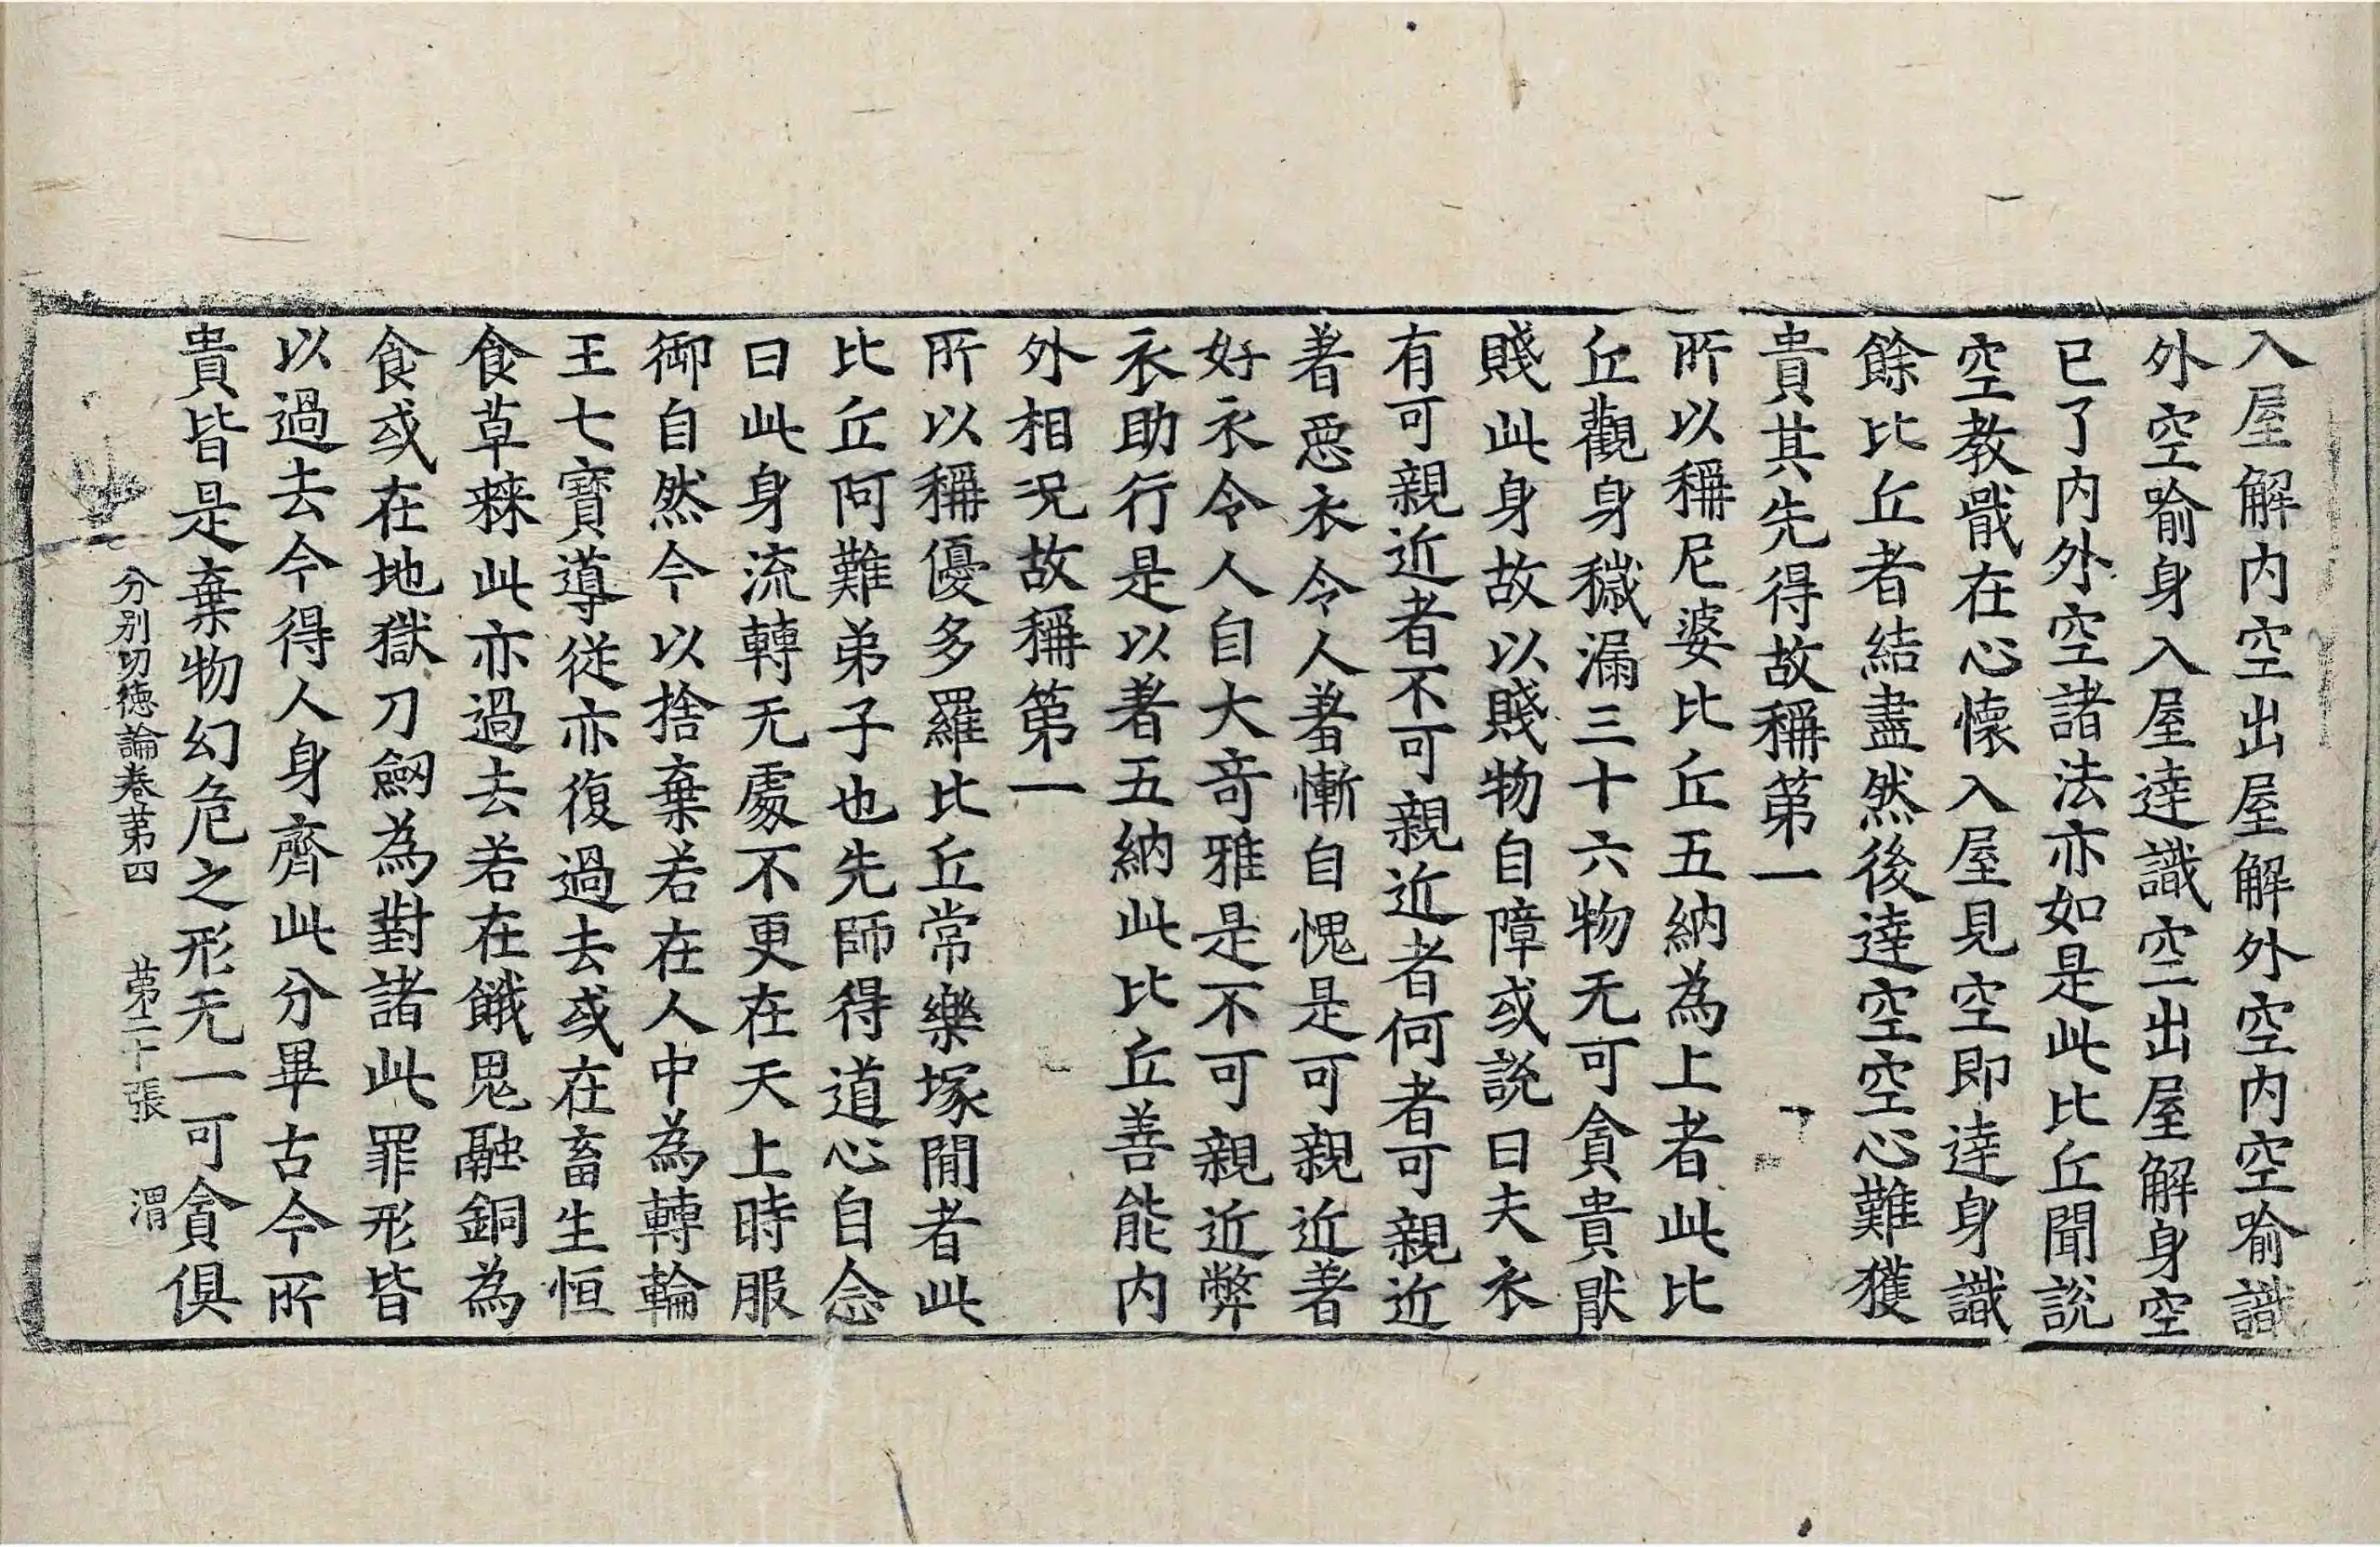 入屋解内空出屋解外空内空喻識
外空喻身入屋達識空二出屋解身空
已了内外空諸法亦如是此比丘聞說
空教戢在心懷入屋見空即達身識
餘比丘者結盡然後達空空心難獲
貴其先得故稱第一
所以稱尼婆比丘五納為上者此比
丘觀身穢漏三十六物无可貪貴猒
賤此身故以賤物自障或說曰夫衣
有可親近者不可親近者何者可親近
著惡衣令人羞慚自愧是可親近著
好衣令人自大竒雅是不可親近弊
衣助行是以著五納此比丘善能内
外相况故稱第一
所以稱優多羅比丘常樂塚間者此
比丘阿難弟子也先師得道心自念
曰此身流轉无處不更在天上時服
御自然今以捨棄若在人中為轉輪
王七寶導從亦復過去或在畜生恒
食草𣗥此亦過去若在餓鬼融銅為
食或在地獄刀劒為對諸此罪形皆
以過去今得人身齊此分畢古今所
貴皆是棄物幻危之形无一可貪俱
分別功德論卷第四 第二十張 渭